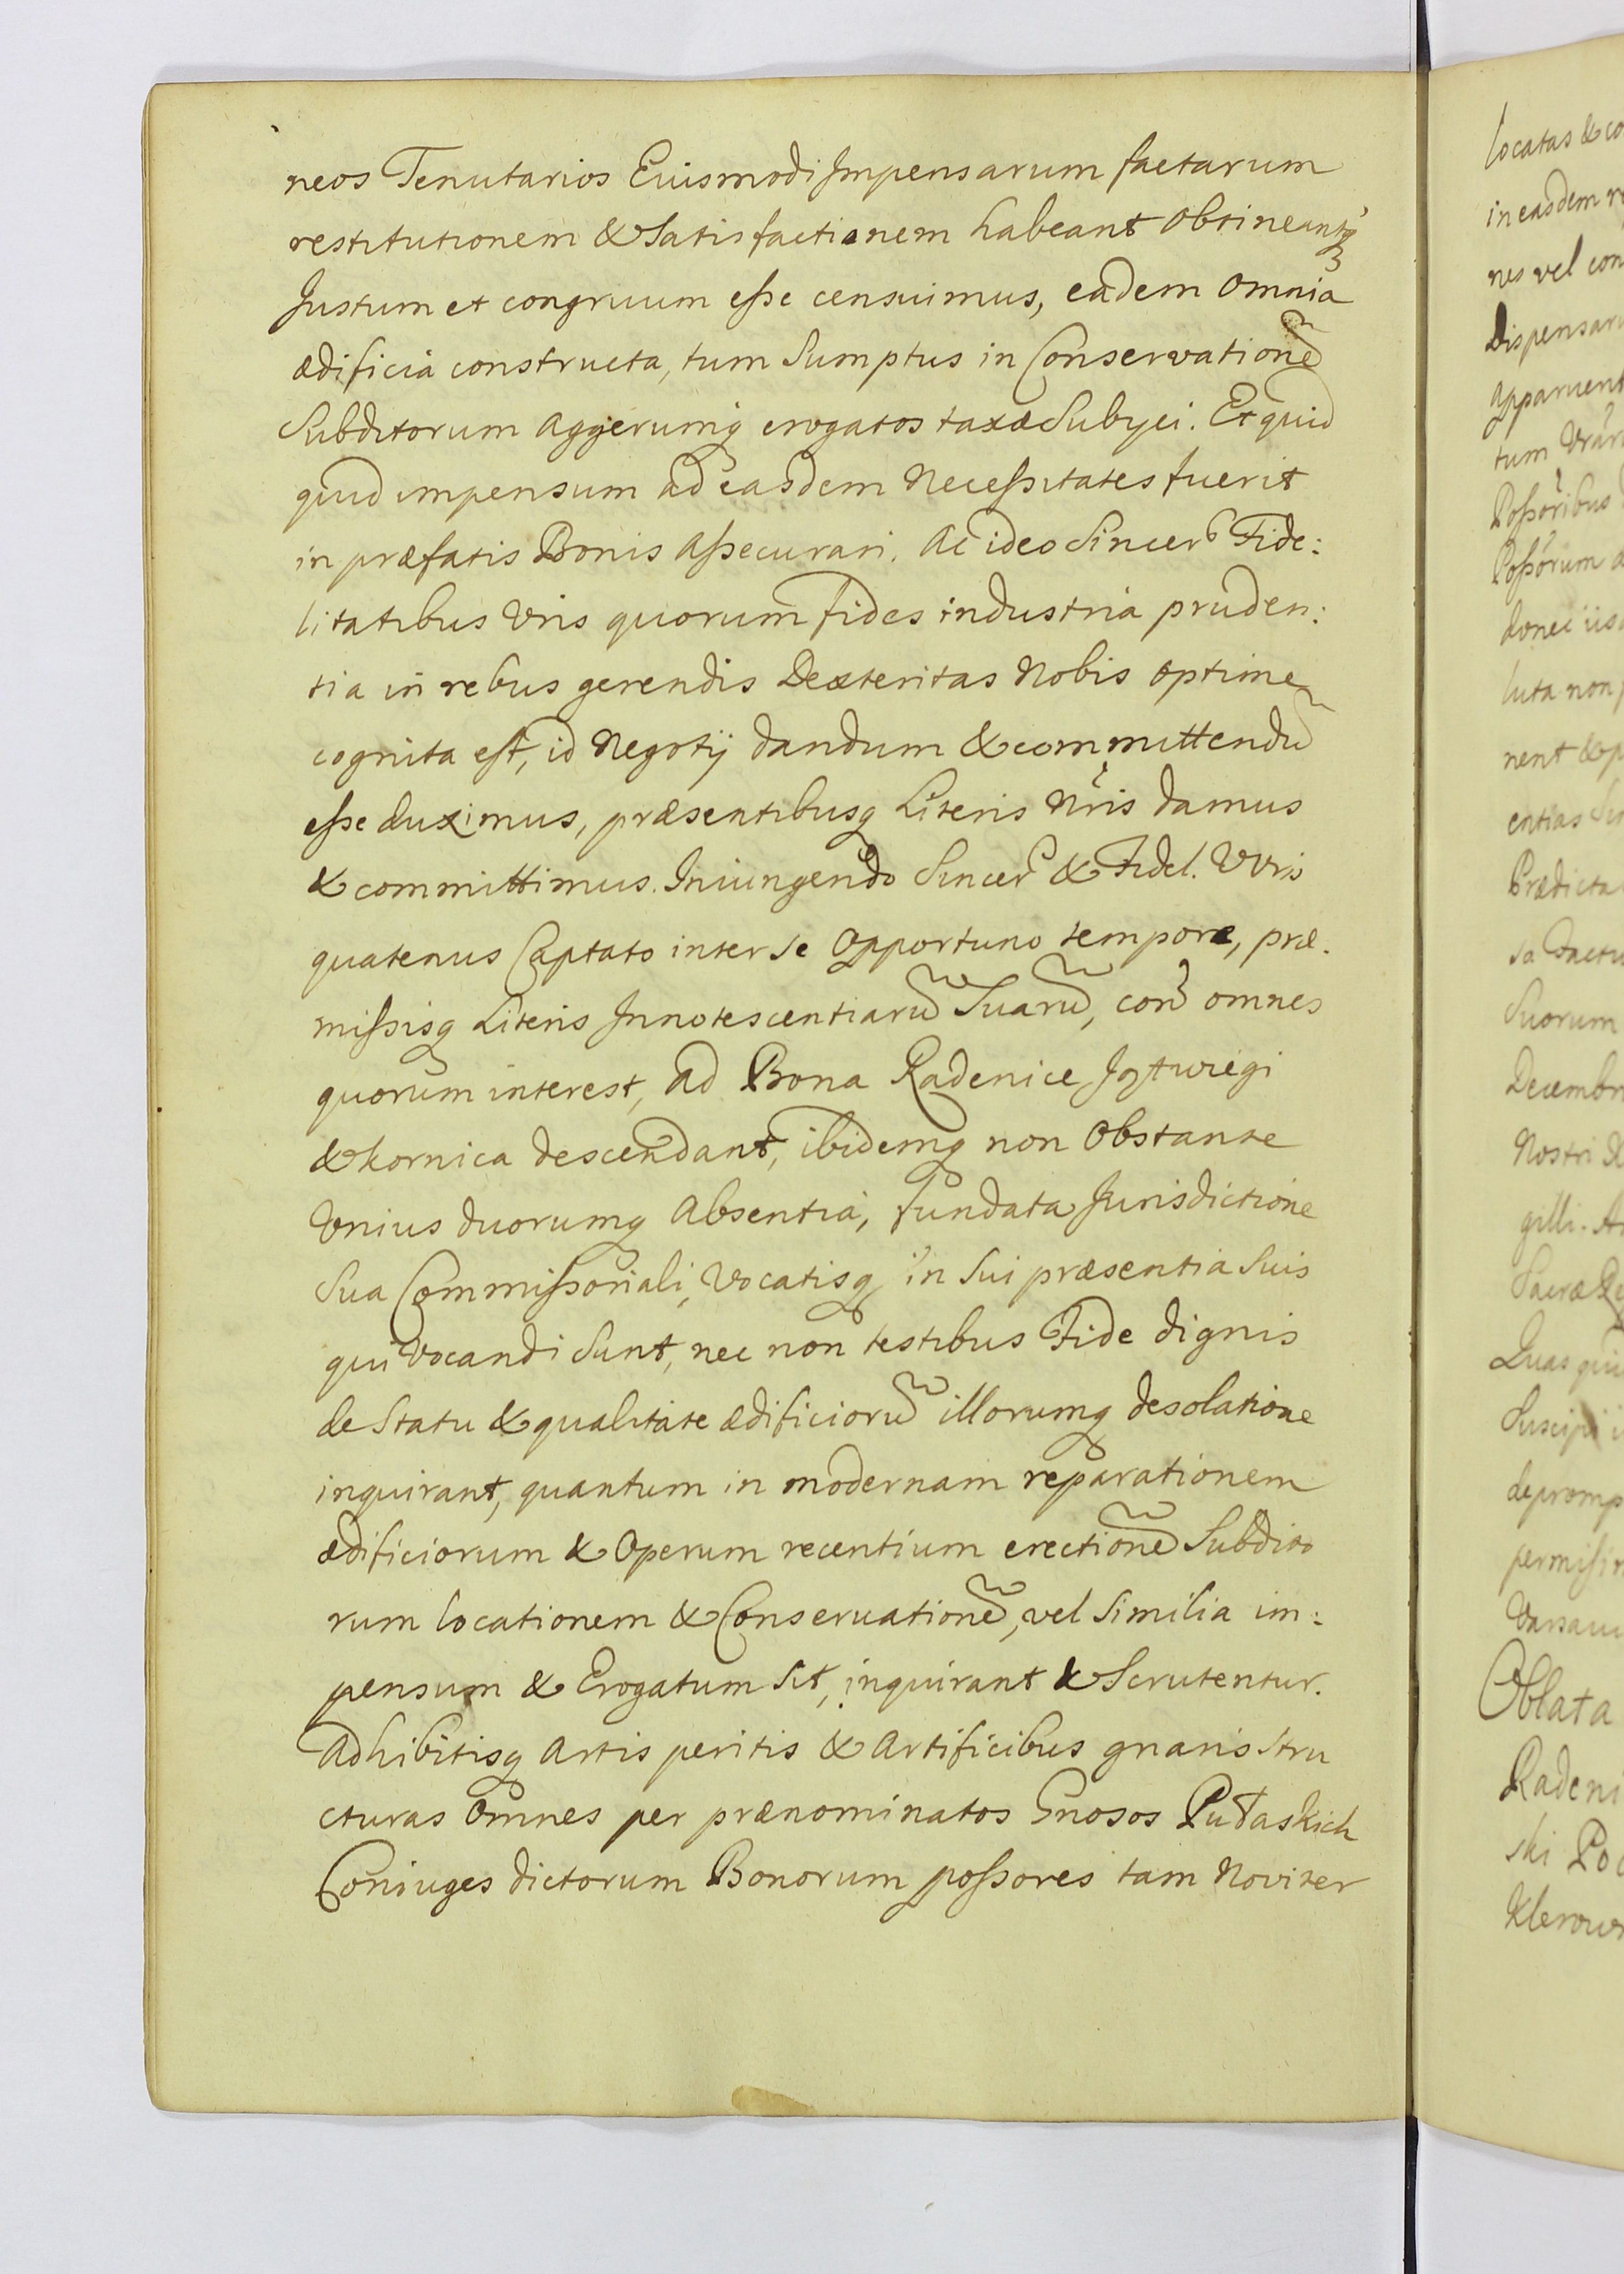 neos Tenutarios Eiusmodi Impensarum factarum
restitutionem & Satisfactionem habeant obtineantq̃
Justum et congruum eſse censuimus, eadem omnia
ædificia constructa, tum Sumptus in Conservationẽ
Subditorum Aggerumq erogatos taxæ Subijci. Et quid
quid impensum ad easdem Neceſsitates fuerit
in præfatis Bonis Aſsecurari. Ac ideo Sincer: Fide:
litatibus Vris quorum fides industria pruden:
tia in rebus gerendis Dexteritas Nobis optime
cognita eſt, id Negotij dandum & committendũ
eſse duximus, præsentibusq Literis Nr̃is damus
& committimus. Iniungendo Sincer & Fidel. Vris
quatenus Captato inter se Opportuno tempore, præ.
miſsisq Literis Innotescentiarũ Suarũ, corã omnes
quorum interest, ad Bona Radenice, Joztwiegi
& kornica descendant, ibidemq non Obstante
Vnius duorumq Absentia, fundata Jurisdictione
Sua Commiſsoriali, Vocatisq in Sui præsentia Suis
qui Vocandi Sunt, nec non testibus Fide dignis
de Statu & qualitate ædificiorũ illorumq desolatione
inquirant, quantum in modernam reparationem
ædificiorum & Operum recentium erectionẽ Subdito
rum locationem & Conseruationẽ, vel Similia im:
pensum & Erogatum Sit, inquirant & Scrutentur.
Adhibitisq Artis peritis & Artificibus gnaris Stru
cturas Omnes per prænominatos Gnosos Pułaskich
Coniuges dictorum Bonorum poſsores tam Noviter
locatas & co
in easdem r
nes vel con
Dispensar
apparuent
tum
Poſsoribus
Poſsorum
donec iis
luta non
nent & p
entias
Prædicta
Suorum
Decembr
Nostri
gilli.
Sacræ
Quas qui
Suscipi
deprompt
permiſi
Varsavi
Oblata
Radeni
ski Po
Klerow